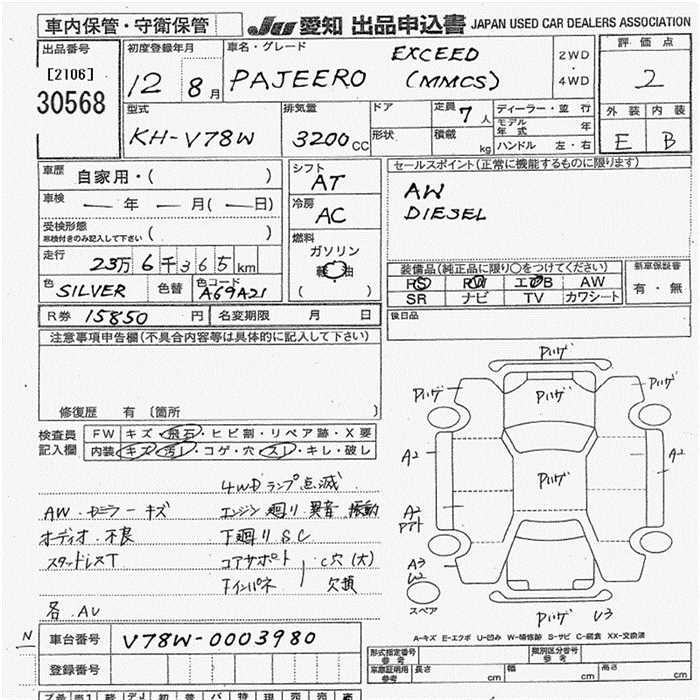 車内保管・守衛保管
JU 愛知 出品申込書 JAPAN USED CAR DEALERS ASSOCIATION
出品番号
[2106]
30568
初度登録年月
12 8月
車名・グレード
EXCEED
PAJEERO (MMCS)
2WD
・
4WD
評価点
2
外装 内装
E B
型式
KH-V78W
排気量
3200cc
ドア
形状
定員 7人
積載 kg
ディーラー・並行
モデル年式 年
ハンドル 左・右
車歴 自家用・( )
車検 — 年 — 月(—日)
受検形態 ( )
車検付きのみ記入して下さい
走行 23万6千365km
色 SILVER 色替 色コード A69A21
シフト
AT
冷房
AC
燃料
ガソリン
軽油
( )
セールスポイント(正常に機能するものに限ります)
AW
DIESEL
装備品(純正品に限り○をつけてください)
PS PW エアB AW
SR ナビ TV カワシート
新車保証書
有・無
後日品
R券 15850 円 名変期限 月 日
注意事項申告欄(不具合内容等は具体的に記入して下さい)
修復歴 有 〔箇所 〕
検査員
記入欄
FW キズ・飛石・ヒビ割・リペア跡・X要
内装 キズ・汚レ・コゲ・穴・スレ・キレ・破レ
4WDランプ点滅
AW・ドミラーキズ エンジン廻り異音 振動
オーディオ不良 下廻りSC
スタッドレスT コアサポート C穴(大)
下インパネ 欠損
各AU
ハゲ
ハゲ
ハゲ
ハゲ
A2
A2
ハゲ
A2
A3
W2
スペア
ハゲ U3
A-キズ E-エクボ U-凹み W-補修跡 S-サビ C-腐食 XX-交換済
N
車台番号 V78W-0003980
登録番号
形式指定番号 参考
類別区分番号 参考
車庫証明 参考 長さ cm 幅 cm 高さ cm